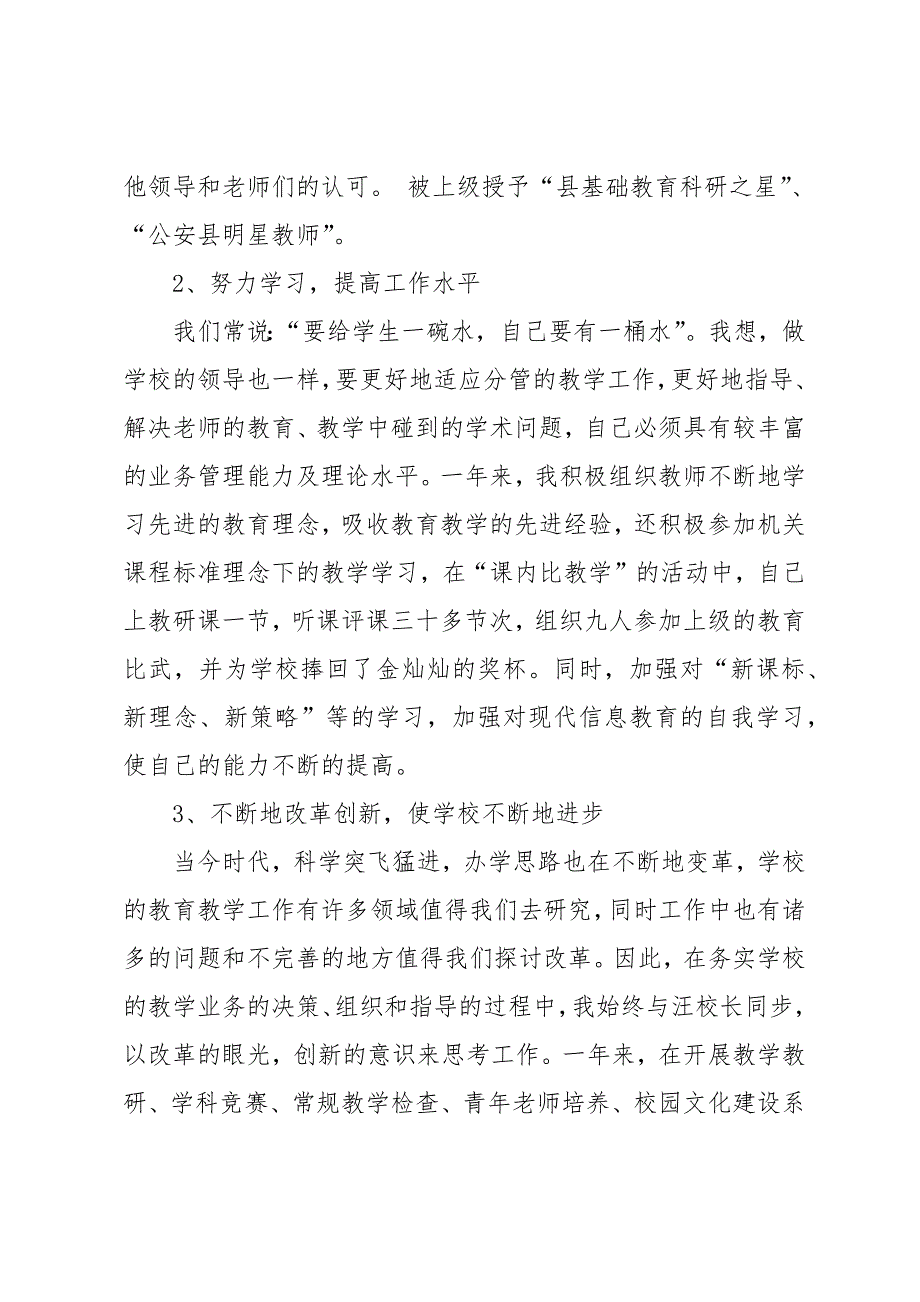 他领导和老师们的认可。 被上级授予“县基础教育科研之星”、
“公安县明星教师”。
2、努力学习，提高工作水平
我们常说：“要给学生一碗水，自己要有一桶水”。我想，做
学校的领导也一样，要更好地适应分管的教学工作，更好地指导、
解决老师的教育、教学中碰到的学术问题，自己必须具有较丰富
的业务管理能力及理论水平。一年来，我积极组织教师不断地学
习先进的教育理念，吸收教育教学的先进经验，还积极参加机关
课程标准理念下的教学学习，在“课内比教学”的活动中，自己
上教研课一节，听课评课三十多节次，组织九人参加上级的教育
比武，并为学校捧回了金灿灿的奖杯。同时，加强对“新课标、
新理念、新策略”等的学习，加强对现代信息教育的自我学习，
使自己的能力不断的提高。
3、不断地改革创新，使学校不断地进步
当今时代，科学突飞猛进，办学思路也在不断地变革，学校
的教育教学工作有许多领域值得我们去研究，同时工作中也有诸
多的问题和不完善的地方值得我们探讨改革。因此，在务实学校
的教学业务的决策、组织和指导的过程中，我始终与汪校长同步，
以改革的眼光，创新的意识来思考工作。一年来，在开展教学教
研、学科竞赛、常规教学检查、青年老师培养、校园文化建设系